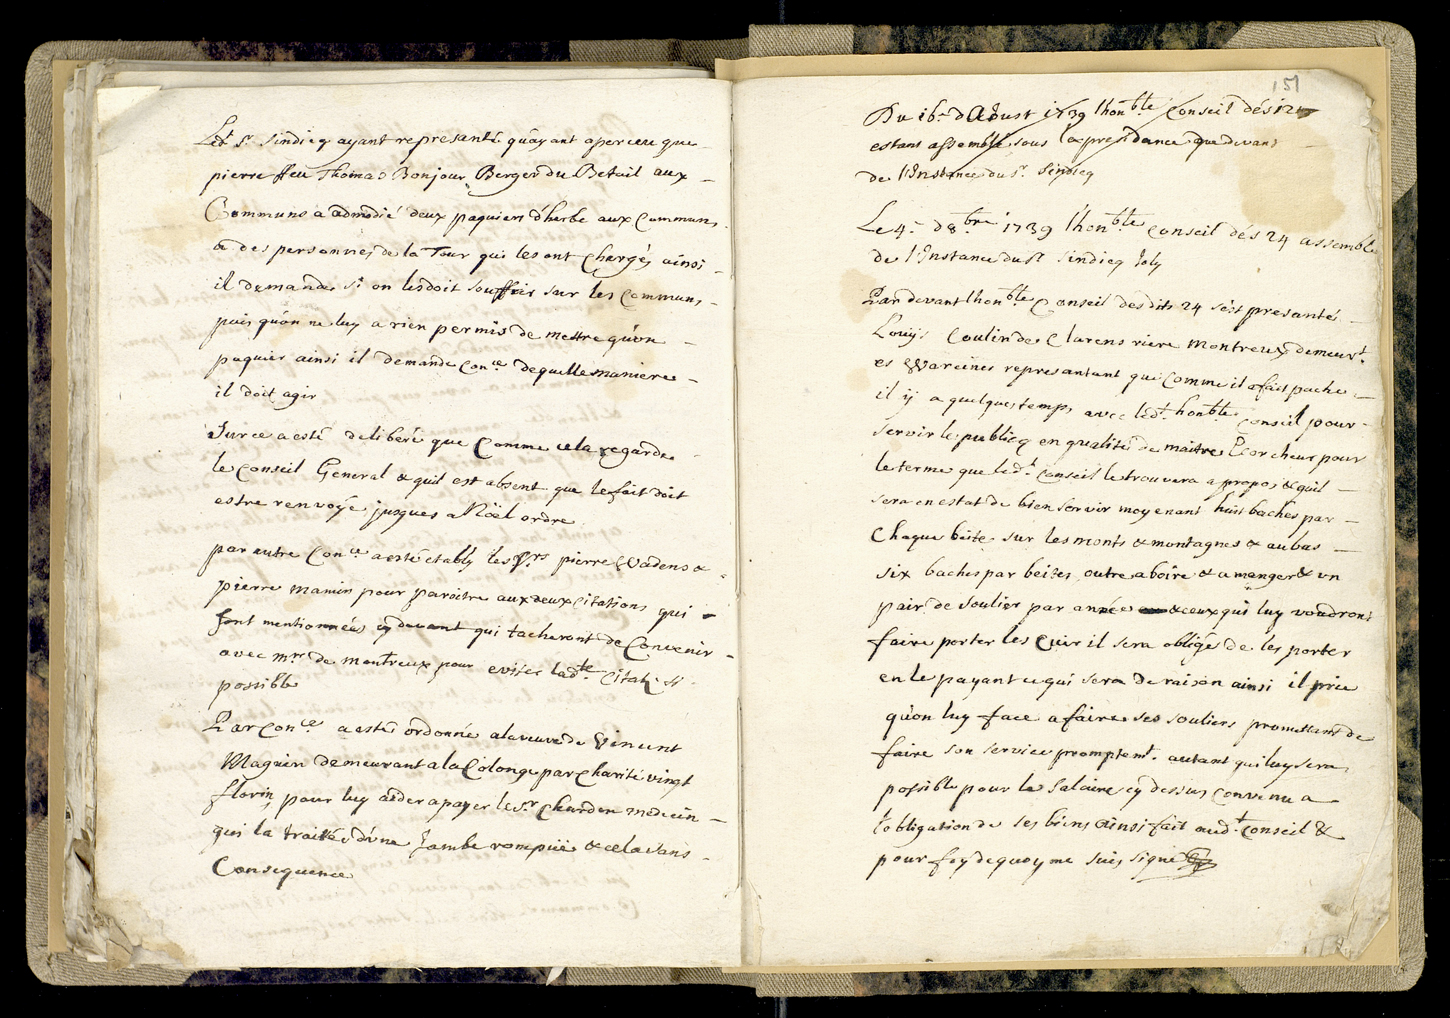 Led.t S.r Sindicq ayant representé quayant aperceu que
pierre ffeu Thomas Bonjour Berger du Betail aux
Communs a admodié deux paquiers d'herbe aux Communs
a des personnes de la Tour qui les ont Chargés ainsi
il demande si on les doit souffrir sur les Communs
puis qu'on ne luy a rien permis de mettre qu'un
paquier ainsi il demande con.ce de quelle maniere
il doit agir
Sur ce a esté deliberé que Comme cela regarde
le Conseil General & quil est absent que le fait doit
estre renvoyé jusques a Noël ordre
par autre Con.ce a esté etably les S.rs pierre Wadens &
pierre Mamin pour paroitre aux deux Citations qui
sont mentionnées cy devant qui tacheront de Convenir
avec M.rs de montreux pour eviter lad.te Citat. si
possible
Par Con.ce a esté ordonné a la veuve de Vincent
Maguin demeurant a la Cologne par Charité vingt
florins pour luy aider a payer le S.r Churden medecin
qui la traittée d'une Jambe rompuë & cela sans
Consequence
151
Du 16. d'Aoust 1739 lhon.ble Conseil dés 12
estans assemblé sous la presidance que devant
de l'Instance du S.r Sindicq
Le 4. d 8.bre 1739 l'hon.ble Conseil dés 24 assemblé
de l'Instance du S.r Sindicq Joly
Par devant lhon.ble Conseil des dits 24 sést presanté
Louys Coulin de Clarens riere Montreux demeur.t
es Wareines represantant que Comme il a fait pache
il y a quelques temps avec led.t hon.ble Conseil pour
servir le publicq en qualité de maitre Ecorcheur pour
le terme que led.t Conseil le trouvera a propos & quil
sera en estat de bien servir moyenant huit baches par
Chaque beste sur les monts & montagnes & au bas
six baches par bestes outre a boire & a manger & un
pair de soulier par année & ceux qui luy voudront
faire porter les Cuir il sera obligés de les porter
en le payant ce qui sera de raison ainsi il prie
qu'on luy face a faire ses souliers promettant de
faire son service promptem.t autant qui luy sera
possible pour le Salaire cy dessus convenu a
l'obligation de ses biens ainsi fait aud.t Conseil &
pour foy de quoy me suis signé